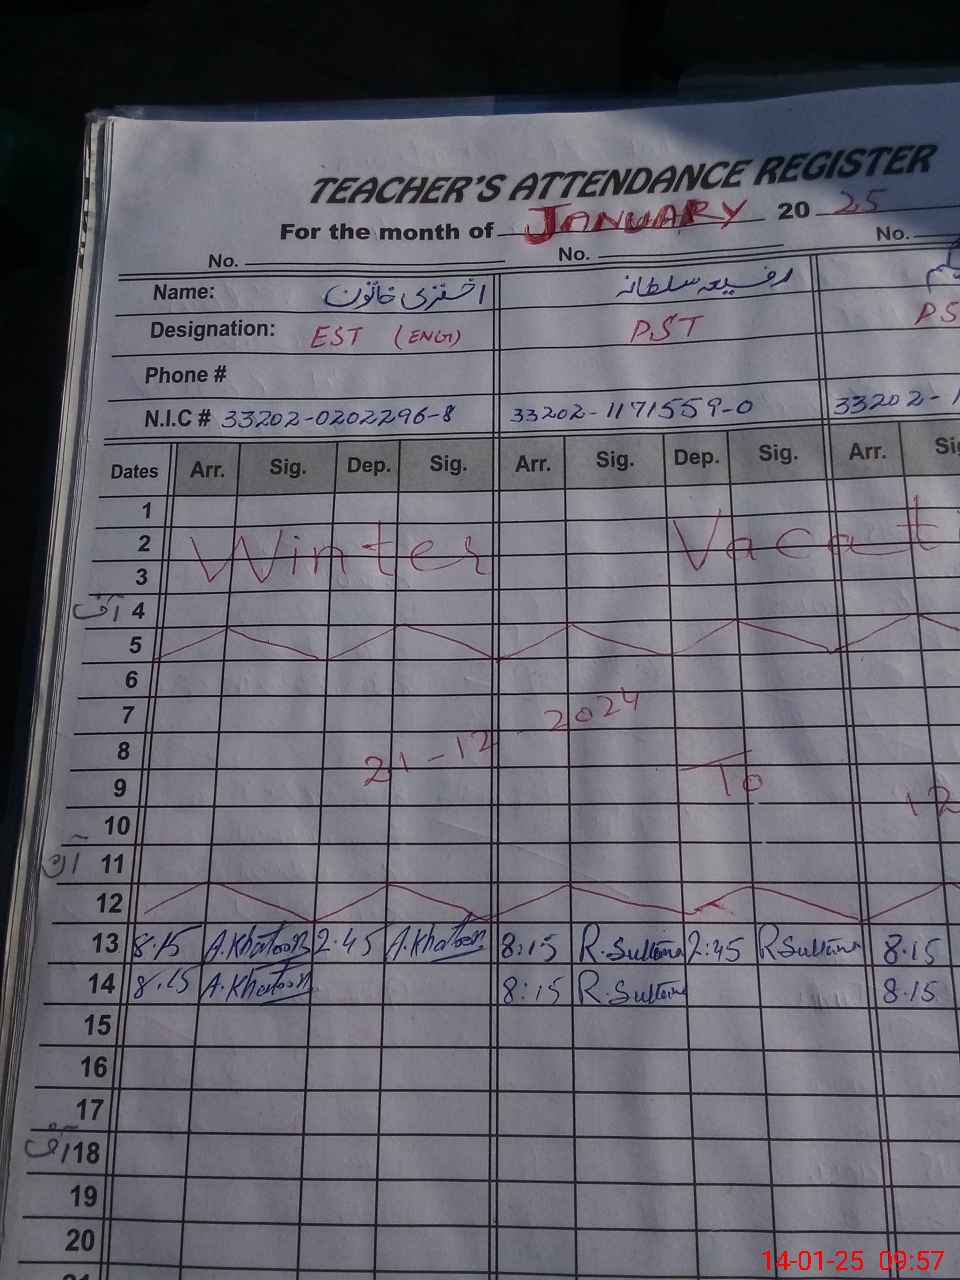 TEACHER'S ATTENDANCE REGISTER
For the month of JANUARY 20 25
No. No. No.
Name: اختری خاتون رفیعہ سلطانہ
Designation: EST (ENG) PST PS
Phone #
N.I.C # 33202-0202296-8 33202-1171559-0 33202-1
Dates Arr. Sig. Dep. Sig. Arr. Sig. Dep. Sig. Arr. Sig
1
2 Winter Vacati
3
4
5
6
7 21-12-2024
8 To
9
10 12
11
12
13 8.15 A.Khatoon 2.45 A.Khatoon 8:15 R.Sultana 2:45 R.Sultana 8.15
14 8.15 A.Khatoon 8:15 R.Sultana 8.15
15
16
17
18
19
20
14-01-25 09:57